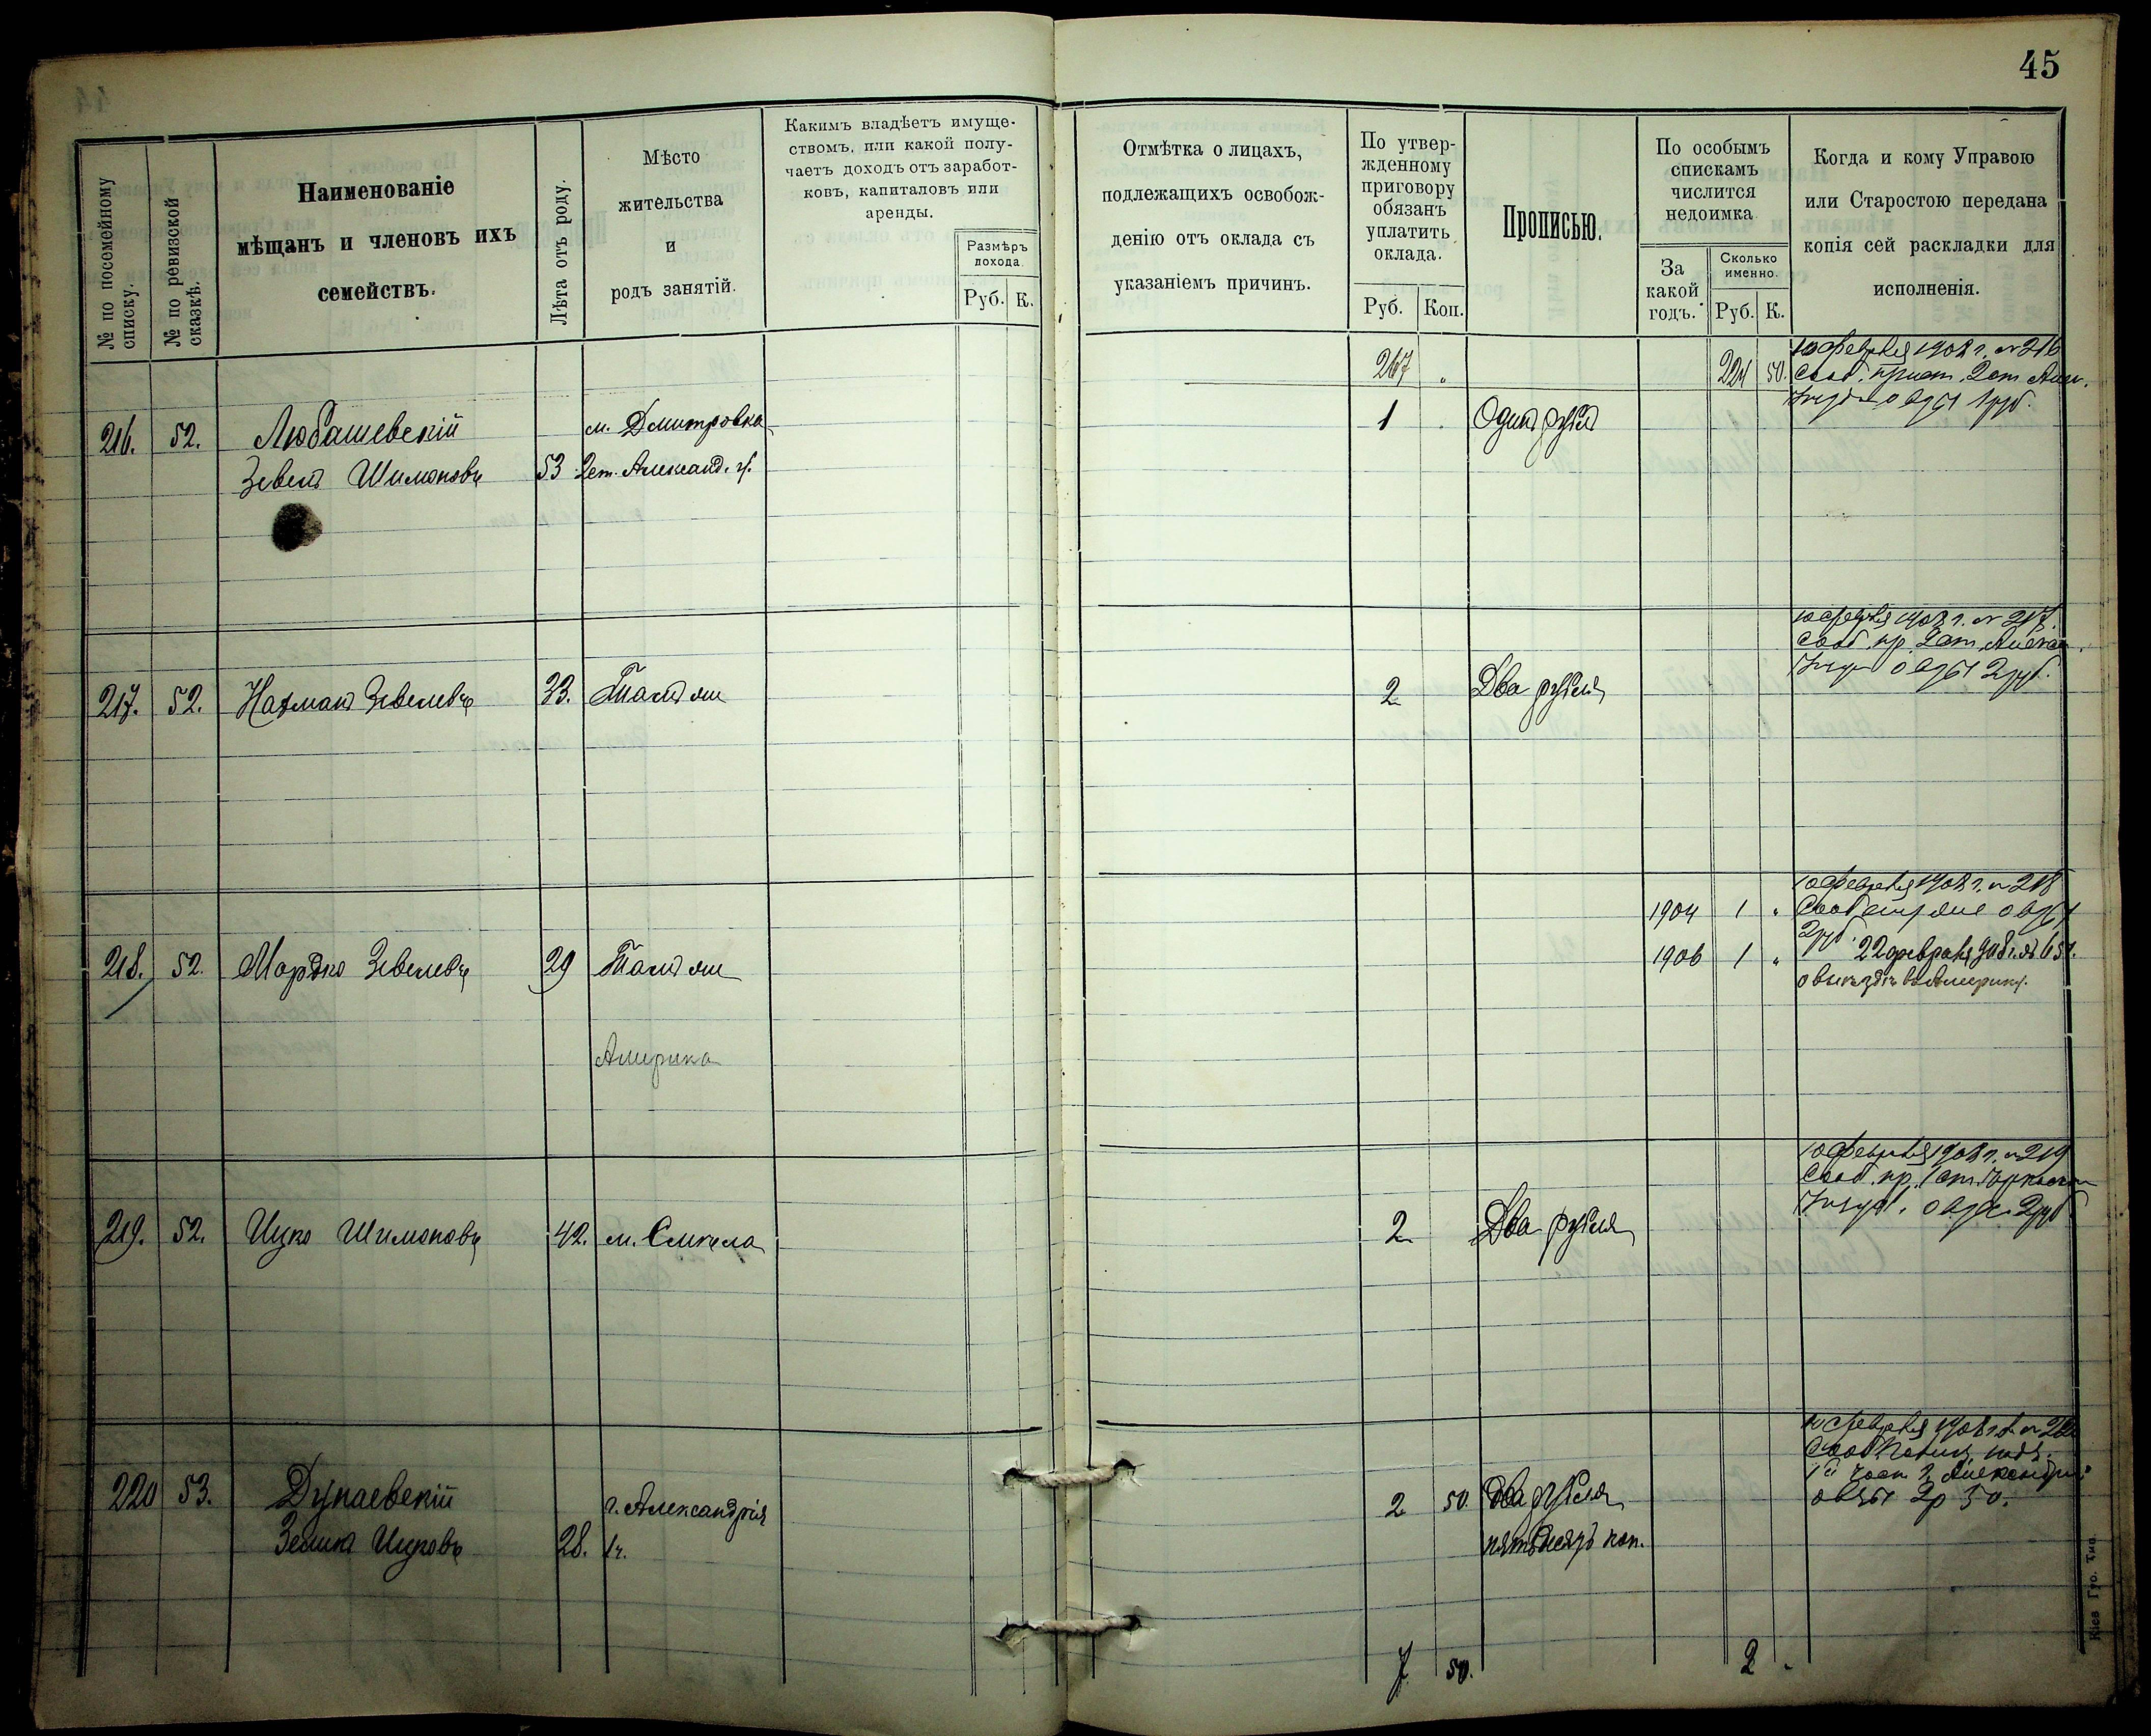 45
№ по посемейному списку.
№ по ревизской сказкѣ.
Наименованіе
мѣщанъ и членовъ ихъ
семействъ.
Лѣта отъ роду.
Мѣсто
жительства
и
родъ занятій.
Какимъ владѣетъ имуще-
ствомъ, или какой полу-
чаетъ доходъ отъ заработ-
ковъ, капиталовъ или
аренды.
Размѣръ
дохода.
Руб. К.
Отмѣтка о лицахъ,
подлежащихъ освобож-
денію отъ оклада съ
указаніемъ причинъ.
По утвер-
жденному
приговору
обязанъ
уплатить
оклада.
Руб. Коп.
Прописью.
По особымъ
спискамъ
числится
недоимка
За
какой
годъ.
Сколько
именно.
Руб. К.
Когда и кому Управою
или Старостою передана
копія сей раскладки для
исполненія.
267 "
224 50.
10 февраля 1908 г. № 216
Сооб. прист. 2 ст. Алек.
о вз. 1 руб.
216. 52. Любашевскій м. Дмитровка 1 Одинъ рубль
Зевель Шимоновъ 53 2 ст. Александ. у.
10 февраля 1908 г. № 217.
Сооб. пр. 2 ст. Алекса
о вз. 2 руб.
217. 52. Нахманъ Зевелевъ 33. Тамъ же 2 Два рубля
10 февраля 1908 г. № 218
1904 1 "
2 руб.
218. 52. Мордко Зевелевъ 29 Тамъ же 1906 1 " 22 февраля 908 г. №
о выѣздѣ въ Америку.
Америка
10 февраля 1908 г. № 219
Сооб. пр. 1 ст. Черкасск
о вз. 2 руб
219. 52. Ицко Шимоновъ 42. м. Смѣла 2 Два рубля
10 февраля 1908 г. № 220
1й част. г. Александріи
о вз. 2 р 50.
220 53. Дунаевскій г. Александрія 2 50. Два рубля
Ицковъ 28. 1 ч. пятьдесятъ коп.
7 50. 2
Кіев. Губ. Тип.